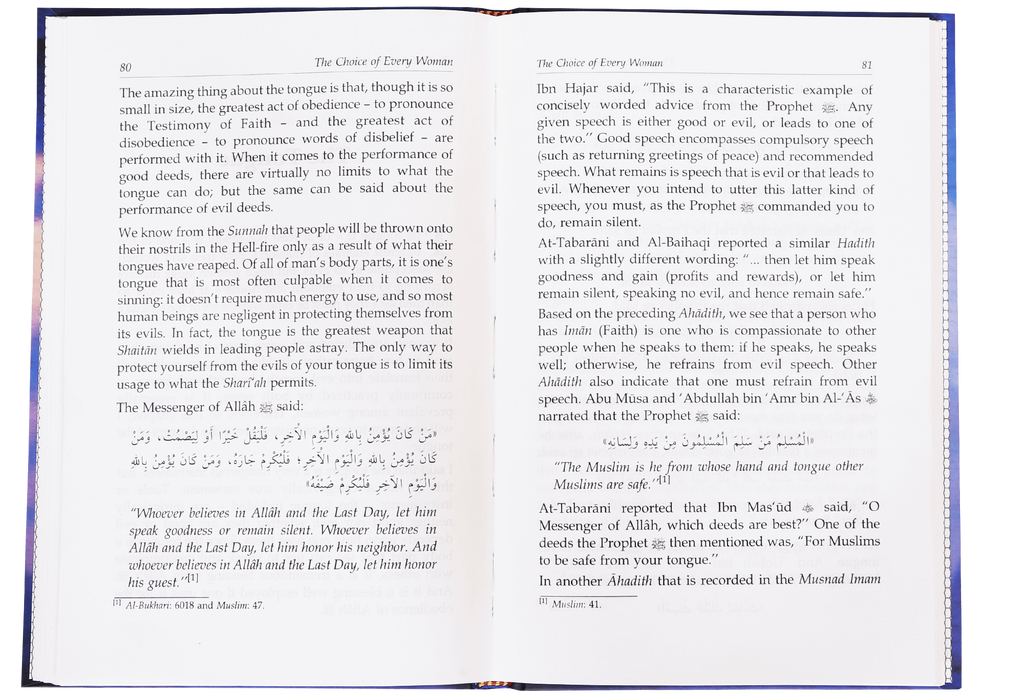 80 The Choice of Every Woman
The amazing thing about the tongue is that, though it is so
small in size, the greatest act of obedience – to pronounce
the Testimony of Faith – and the greatest act of
disobedience – to pronounce words of disbelief – are
performed with it. When it comes to the performance of
good deeds, there are virtually no limits to what the
tongue can do; but the same can be said about the
performance of evil deeds.
We know from the Sunnah that people will be thrown onto
their nostrils in the Hell-fire only as a result of what their
tongues have reaped. Of all of man's body parts, it is one's
tongue that is most often culpable when it comes to
sinning: it doesn't require much energy to use, and so most
human beings are negligent in protecting themselves from
its evils. In fact, the tongue is the greatest weapon that
Shaitân wields in leading people astray. The only way to
protect yourself from the evils of your tongue is to limit its
usage to what the Sharî'ah permits.
The Messenger of Allâh ﷺ said:
«مَنْ كَانَ يُؤْمِنُ بِاللهِ وَالْيَوْمِ الآخِرِ، فَلْيَقُلْ خَيْرًا أَوْ لِيَصْمُتْ، وَمَنْ
كَانَ يُؤْمِنُ بِاللهِ وَالْيَوْمِ الآخِرِ، فَلْيُكْرِمْ جَارَهُ، وَمَنْ كَانَ يُؤْمِنُ بِاللهِ
وَالْيَوْمِ الآخِرِ فَلْيُكْرِمْ ضَيْفَهُ»
"Whoever believes in Allâh and the Last Day, let him
speak goodness or remain silent. Whoever believes in
Allâh and the Last Day, let him honor his neighbor. And
whoever believes in Allâh and the Last Day, let him honor
his guest."[1]
[1] Al-Bukhari: 6018 and Muslim: 47.
The Choice of Every Woman 81
Ibn Hajar said, "This is a characteristic example of
concisely worded advice from the Prophet ﷺ. Any
given speech is either good or evil, or leads to one of
the two." Good speech encompasses compulsory speech
(such as returning greetings of peace) and recommended
speech. What remains is speech that is evil or that leads to
evil. Whenever you intend to utter this latter kind of
speech, you must, as the Prophet ﷺ commanded you to
do, remain silent.
At-Tabarâni and Al-Baihaqi reported a similar Hadith
with a slightly different wording: "... then let him speak
goodness and gain (profits and rewards), or let him
remain silent, speaking no evil, and hence remain safe."
Based on the preceding Ahâdith, we see that a person who
has Imân (Faith) is one who is compassionate to other
people when he speaks to them: if he speaks, he speaks
well; otherwise, he refrains from evil speech. Other
Ahâdith also indicate that one must refrain from evil
speech. Abu Mûsa and 'Abdullah bin 'Amr bin Al-'Âs
narrated that the Prophet ﷺ said:
«الْمُسْلِمُ مَنْ سَلِمَ الْمُسْلِمُونَ مِنْ يَدِهِ وَلِسَانِهِ»
"The Muslim is he from whose hand and tongue other
Muslims are safe."[1]
At-Tabarâni reported that Ibn Mas'ûd said, "O
Messenger of Allâh, which deeds are best?" One of the
deeds the Prophet ﷺ then mentioned was, "For Muslims
to be safe from your tongue."
In another Âhadith that is recorded in the Musnad Imam
[1] Muslim: 41.